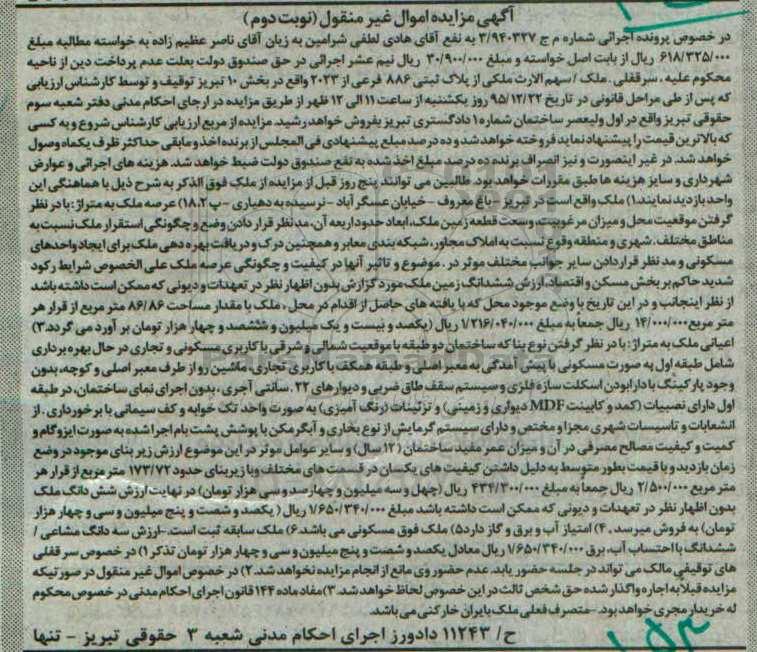 آگهی مزایده اموال غیر منقول (نوبت دوم)
در خصوص پرونده اجرائی شماره م ج ۳/۹۴۰۳۲۷ به نفع آقای هادی لطفی شرامین به زیان آقای ناصر عظیم زاده به خواسته مطالبه مبلغ
۶۱۸/۳۲۵/۰۰۰ ریال از بابت اصل خواسته و مبلغ ۳۰/۹۰۰/۰۰۰ ریال نیم عشر اجرائی در حق صندوق دولت بعلت عدم پرداخت دین از ناحیه
محکوم علیه ، سرقفلی . ملک / سهم الارث ملکی از پلاک ثبتی ۸۸۶ فرعی از ۲۰۲۳ واقع در بخش ۱۰ تبریز توقیف و توسط کارشناس ارزیابی
که پس از طی مراحل قانونی در تاریخ ۹۵/۱۲/۲۲ روز یکشنبه از ساعت ۱۱ الی ۱۲ ظهر از طریق مزایده در اجرای احکام مدنی دفتر شعبه سوم
حقوقی تبریز واقع در اول ولیعصر ساختمان شماره ۱ دادگستری تبریز بفروش خواهد رسید. مزایده از مربع ارزیابی کارشناس شروع و به کسی
که بالاترین قیمت را پیشنهاد نماید فروخته خواهد شد و ده درصد مبلغ پیشنهادی فی المجلس از برنده اخذ و مابقی حداکثر ظرف یکماه وصول
خواهد شد. در غیر اینصورت و نیز انصراف برنده ده درصد مبلغ اخذ شده به نفع صندوق دولت ضبط خواهد شد. هزینه های اجرائی و عوارض
شهرداری و سایر هزینه ها طبق مقررات خواهد بود. طالبین می توانند پنج روز قبل از مزایده از ملک فوق الذکر به شرح ذیل با هماهنگی این
واحد بازدید نمایند. ۱) ملک واقع است در تبریز – باغ معروف – خیابان عسگر آباد – نرسیده به دهیاری – پ ۱۸.۲) عرصه ملک به متراژ: با در نظر
گرفتن موقعیت محل و میزان مرغوبیت، وسعت قطعه زمین ملک، ابعاد حدود اربعه آن، مد نظر قرار دادن وضع و چگونگی استقرار ملک نسبت به
مناطق مختلف. شهری و منطقه وقوع نسبت به املاک مجاور، شبکه بندی معابر و همچنین درک و دریافت بهره دهی ملک برای ایجاد واحدهای
مسکونی و مد نظر قرار دادن سایر جوانب مختلف موثر در . موضوع و تاثیر آنها در کیفیت و چگونگی عرصه ملک علی الخصوص شرایط رکود
شدید حاکم بر بخش مسکن و اقتصاد، ارزش ششدانگ زمین ملک مورد گزارش بدون اظهار نظر در تعهدات و دیونی که ممکن است داشته باشد
از نظر اینجانب و در این تاریخ با وضع موجود محل که با یافته های حاصل از اقدام در محل ، ملک با مقدار مساحت ۸۶/۸۶ متر مربع از قرار هر
متر مربع ۱۴/۰۰۰/۰۰۰ ریال جمعا به مبلغ ۱/۲۱۶/۰۴۰/۰۰۰ ریال (یکصد و بیست و یک میلیون و ششصد و چهار هزار تومان بر آورد می گردد. ۳)
اعیانی ملک به متراژ: با در نظر گرفتن نوع بنا که ساختمان دو طبقه با موقعیت شمالی و شرقی با کاربری مسکونی و تجاری در حال بهره برداری
شامل طبقه اول به صورت مسکونی با پیش آمدگی به معبر اصلی و طبقه همکف با کاربری تجاری، ماشین رو از طرف معبر اصلی و کوچه، بدون
وجود پارکینگ با دارا بودن اسکلت سازه فلزی و سیستم سقف طاق ضربی و دیوارهای ۲۲ . سانتی آجری ، بدون اجرای نمای ساختمان، در طبقه
اول دارای نصبیات (کمد و کابینت MDF دیواری و زمینی) و تزئینات (رنگ آمیزی) به صورت واحد تک خوابه و کف سیمانی با برخورداری . از
انشعابات و تاسیسات شهری مجزا و مختص و دارای سیستم گرمایش از نوع بخاری و آبگرمکن با پوشش پشت بام اجرا شده به صورت ایزوگام و
کمیت و کیفیت مصالح مصرفی در آن و میزان عمر مفید ساختمان (۱۲ سال) و سایر عوامل موثر در این موضوع ارزش زیر بنای موجود در وضع
زمان بازدید و با قیمت بطور متوسط به دلیل داشتن کیفیت های یکسان در قسمت های مختلف و با زیربنای حدود ۱۷۳/۷۲ متر مربع از قرار هر
متر مربع ۲/۵۰۰/۰۰۰ ریال جمعا به مبلغ ۴۳۴/۳۰۰/۰۰۰ ریال (چهل و سه میلیون و چهارصد و سی هزار تومان) در نهایت ارزش شش دانگ ملک
بدون اظهار نظر در تعهدات و دیونی که ممکن است داشته باشد مبلغ ۱/۶۵۰/۳۴۰/۰۰۰ ریال ( یکصد و شصت و پنج میلیون و سی و چهار هزار
تومان) به فروش میرسد . ۴) امتیاز آب و برق و گاز دارد ۵) ملک فوق مسکونی می باشد. ۶) ملک سابقه ثبت است. -ارزش سه دانگ مشاعی /
ششدانگ با احتساب آب، برق ۱/۶۵۰/۳۴۰/۰۰۰ ریال معادل یکصد و شصت و پنج میلیون و سی و چهار هزار تومان تذکر ۱) در خصوص سر قفلی
های توقیفی مالک می تواند در جلسه حضور یابد. عدم حضور وی مانع از انجام مزایده نخواهد شد. ۲) در خصوص اموال غیر منقول در صورتیکه
مزایده قبلا به اجاره واگذار شده حق شخص ثالث در این خصوص لحاظ خواهد شد. ۳) مفاد ماده ۱۴۴ قانون اجرای احکام مدنی در خصوص محکوم
له خریدار مجری خواهد بود. -متصرف فعلی ملک با ایران خار کنی می باشد.
ح/ ۱۱۲۴۳ دادورز اجرای احکام مدنی شعبه ۳ حقوقی تبریز – تنها
۱۵۳